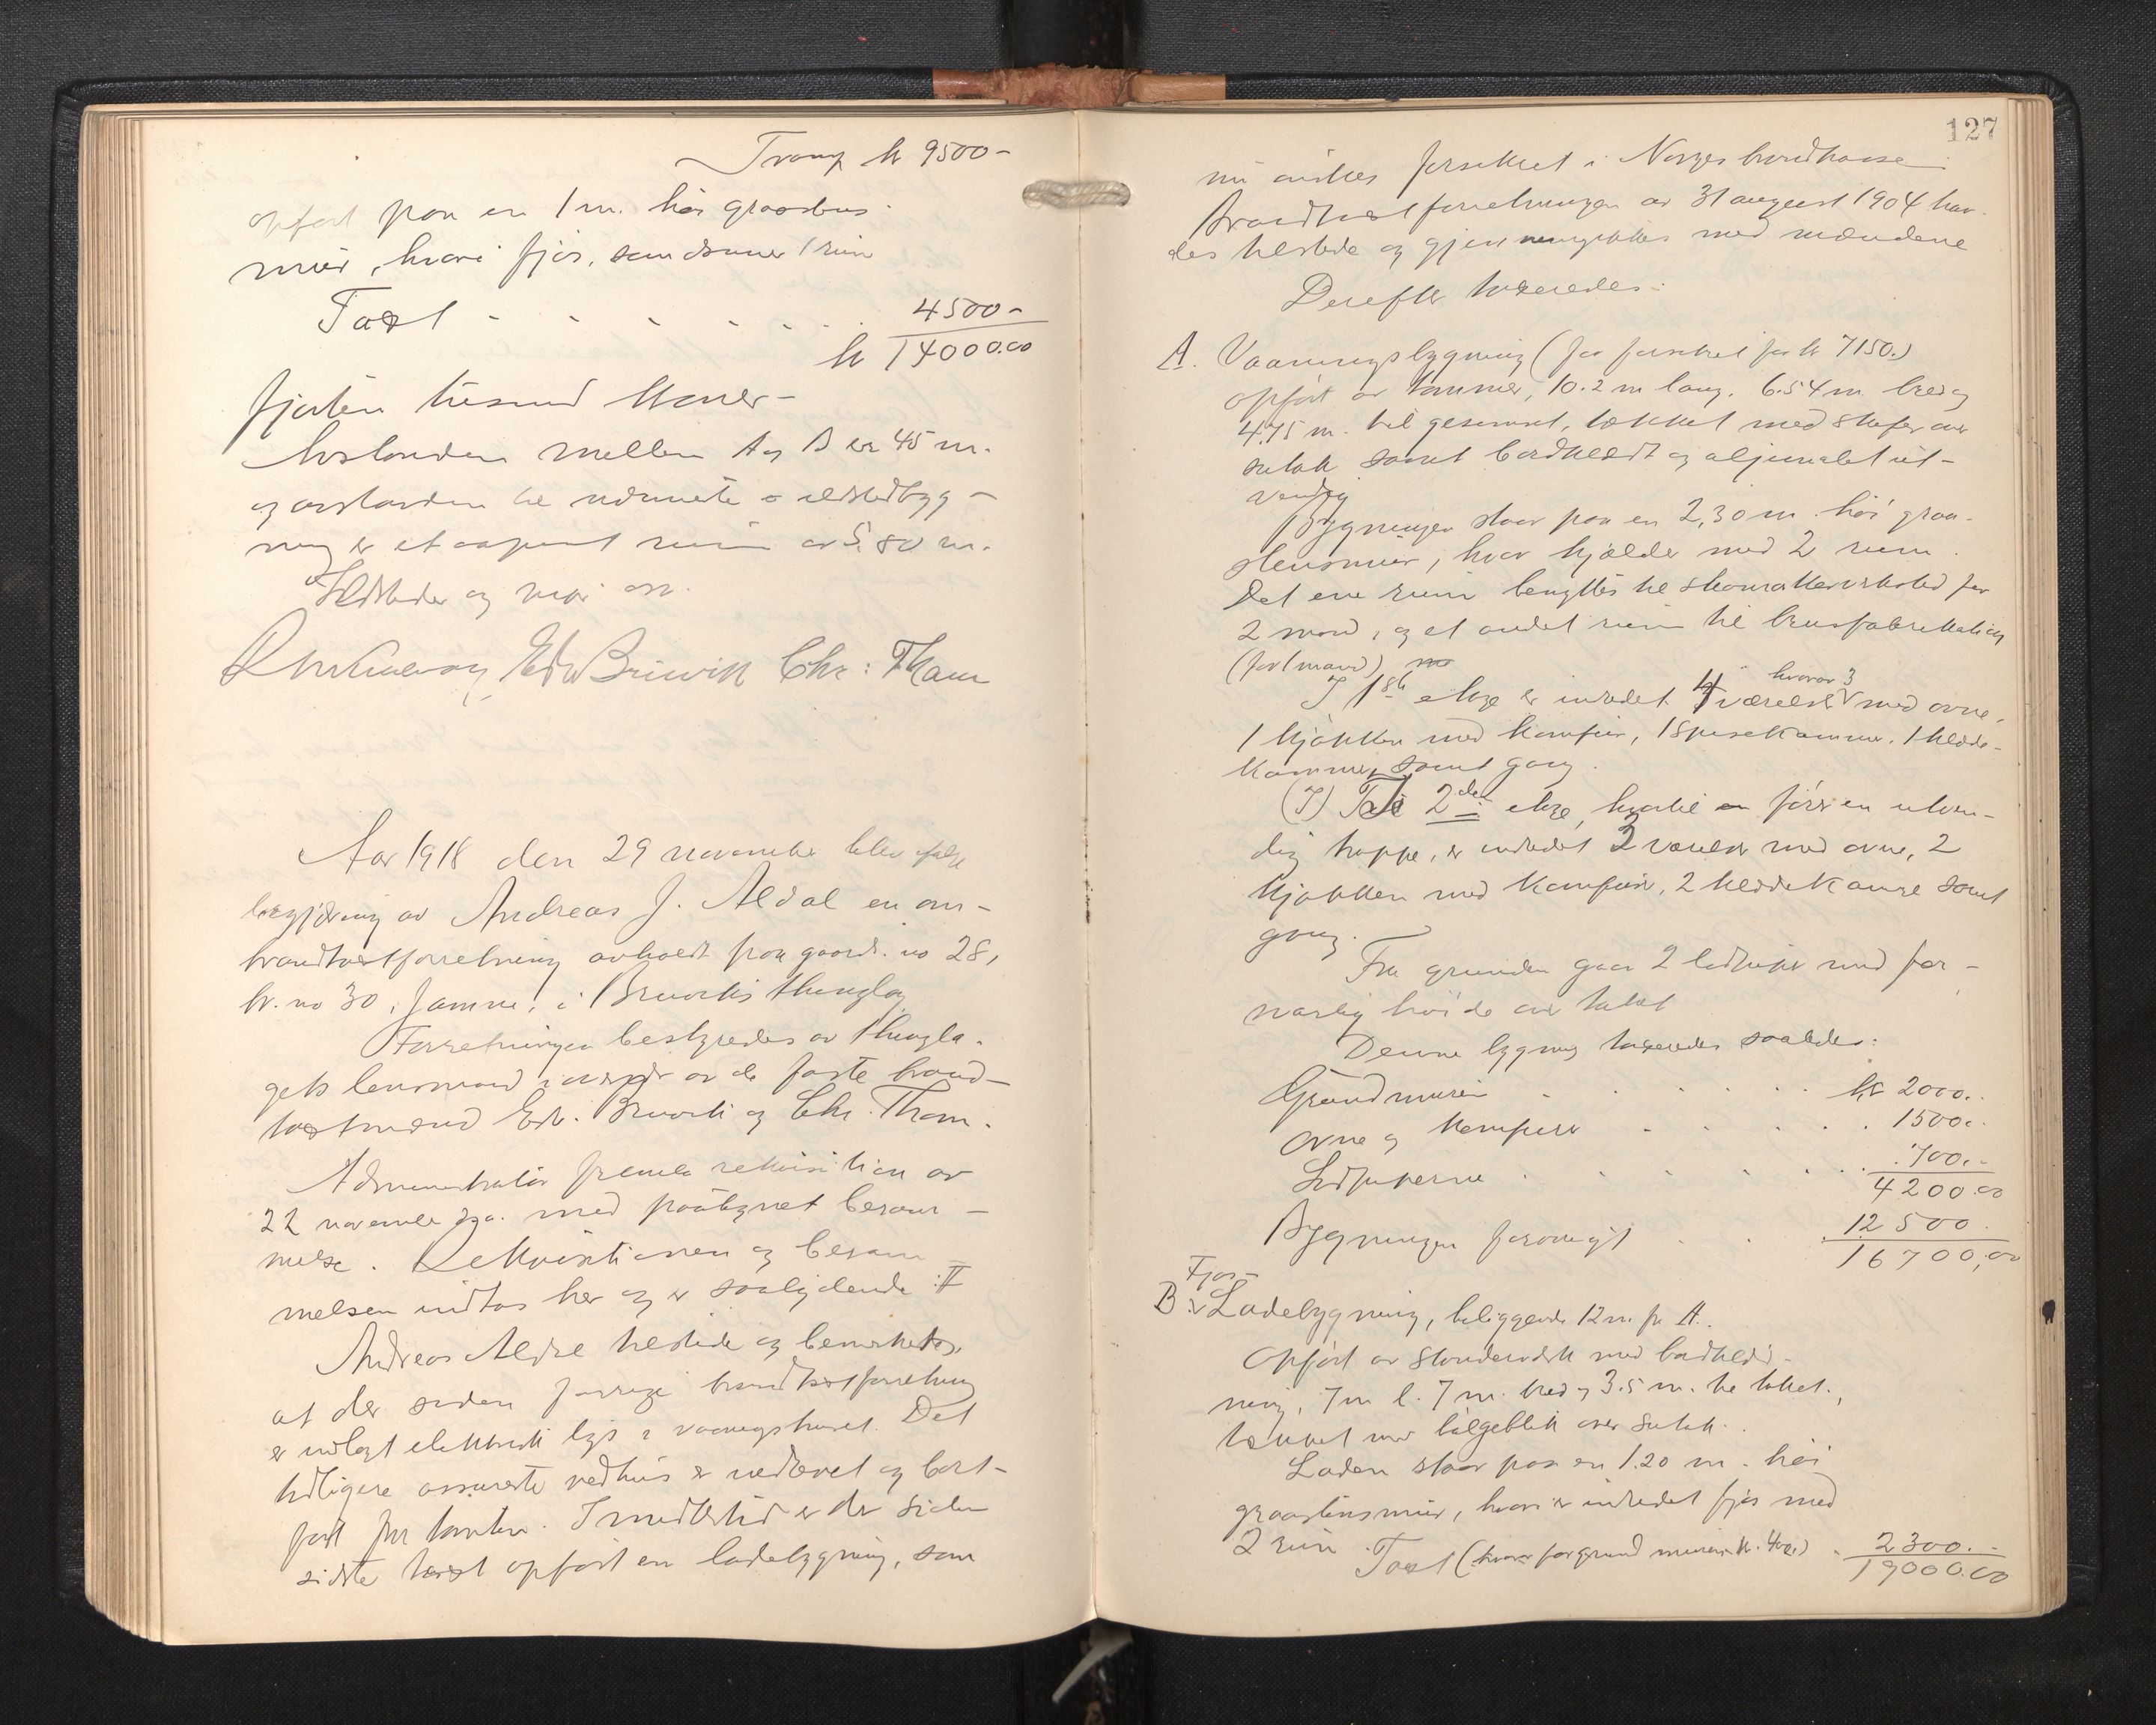 Transp kr 9500-
opført paa en 1 m. høi graastens
mur, hvori fjøs, samt 1 rum
Taxt - - - - - 4500-
kr 14000.00
fjorten tusend kroner-
Avstanden mellem A og B er 45 m.
og avstanden til nærmeste ildstedbyg-
ning er et aapent rum av 5.80 m.
Ildsteder og rør
Edv Bruvik Chr: Tham
Aar 1918 den 29 november blev efter
begjæring av Andreas J. Aldal en om-
brandtaxtforretning avholdt paa gaards. no 28,
br. no 30, i Bruviks thinglag
Forretningen bestyredes av thingla-
gets lensmand i overvær av de faste brand-
taxtmænd Edv. Bruvik og Chr. Tham.
Administrator fremla rekvisition av
22 november d.a. med paategnet beram-
melse. Rekvisitionen og beram
melsen indtas her og er saalydende :#
Andreas Aldal tilstede og bemerkedes,
at der siden forrige brandtaxtforretning
er indlagt elektrisk lys i vaaningshuset. Det
tidligere assurerte vedhus er nedrevet og bort-
ført fra tomten. Imidlertid er der siden
sidste taxt opført en ladebygning, som
127
nu ønskes forsikret i Norges brandkasse
Brandtaxtforretningen av 31 august 1904 hav-
des tilstede og gjennemgikkes med mændene
Derefter taxeredes:
A. Vaaningsbygning (før forsikret for kr 7150.)
opført av tømmer, 10.2 m lang. 6.54 m. bred og
4.75 m. til gesimset, tækket med skifer over
sutak samt bordklædt og oljemalet ut-
vendig
Bygningen staar paa en 2,30 m. høi graa-
stensmur, hvor kjælder med 2 rum.
Det ene rum benyttes til skomakerverksted for
2 mand, og et andet rum til brusfabrikation
(for 1 mand)
I 1ste etage er indredet 4 værelser hvorav 3 med ovne,
1 kjøkken med komfur, 1 spisekammer, 1 klæde-
kammer samt gang.
(I) Til 2den etage, hvortil fører en utven-
dig trappe, er indredet 3 værelser med ovne, 2
kjøkken med komfur, 2 klædekamre samt
gang.
Fra grunden gaar 2 ledpiper med for-
svarlig høide over taket
Denne bygning taxeredes saaledes:
Grundmuren - - - - kr 2000.-
Ovne og komfurer - - - - 1500.-
Ledpiperne - - - - 700.-
4200.00
Bygningen forøvrigt - - 12500.
16700,00
B. Fjøs- Ladebygning, beliggende 12 m. fr A.
Opført av stenderverk med bordklæd-
ning, 7 m l. 7 m. bred og 3.5 m. til taket.,
tækket med bølgeblik over sutak.
Laden staar paa en 1.20 m. høi
graastensmur, hvori er indredet fjøs med
2 rum. Taxt (hvorav for grund muren kr. 400.) - 2300.-
19000.00